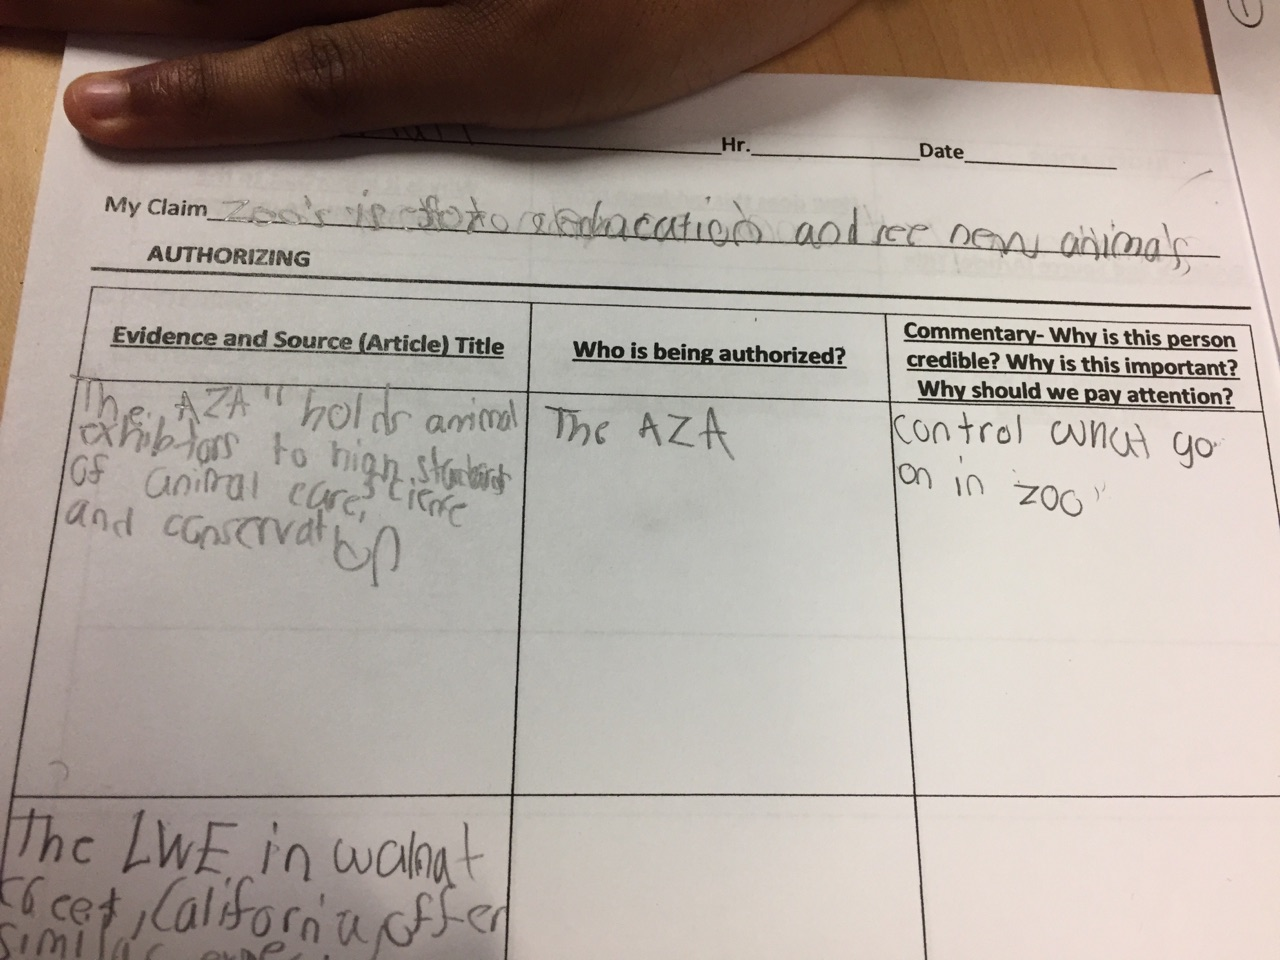 Hr. Date
My Claim Zoo's is to edacation and see new animals,
AUTHORIZING
Evidence and Source (Article) Title
Who is being authorized?
Commentary- Why is this person
credible? Why is this important?
Why should we pay attention?
The AZA " holds animal
exhibitors to high standards
of animal care, science
and conservation
The AZA
control what go
on in zoo"
The LWE in walnat
creet, California, offer
similar